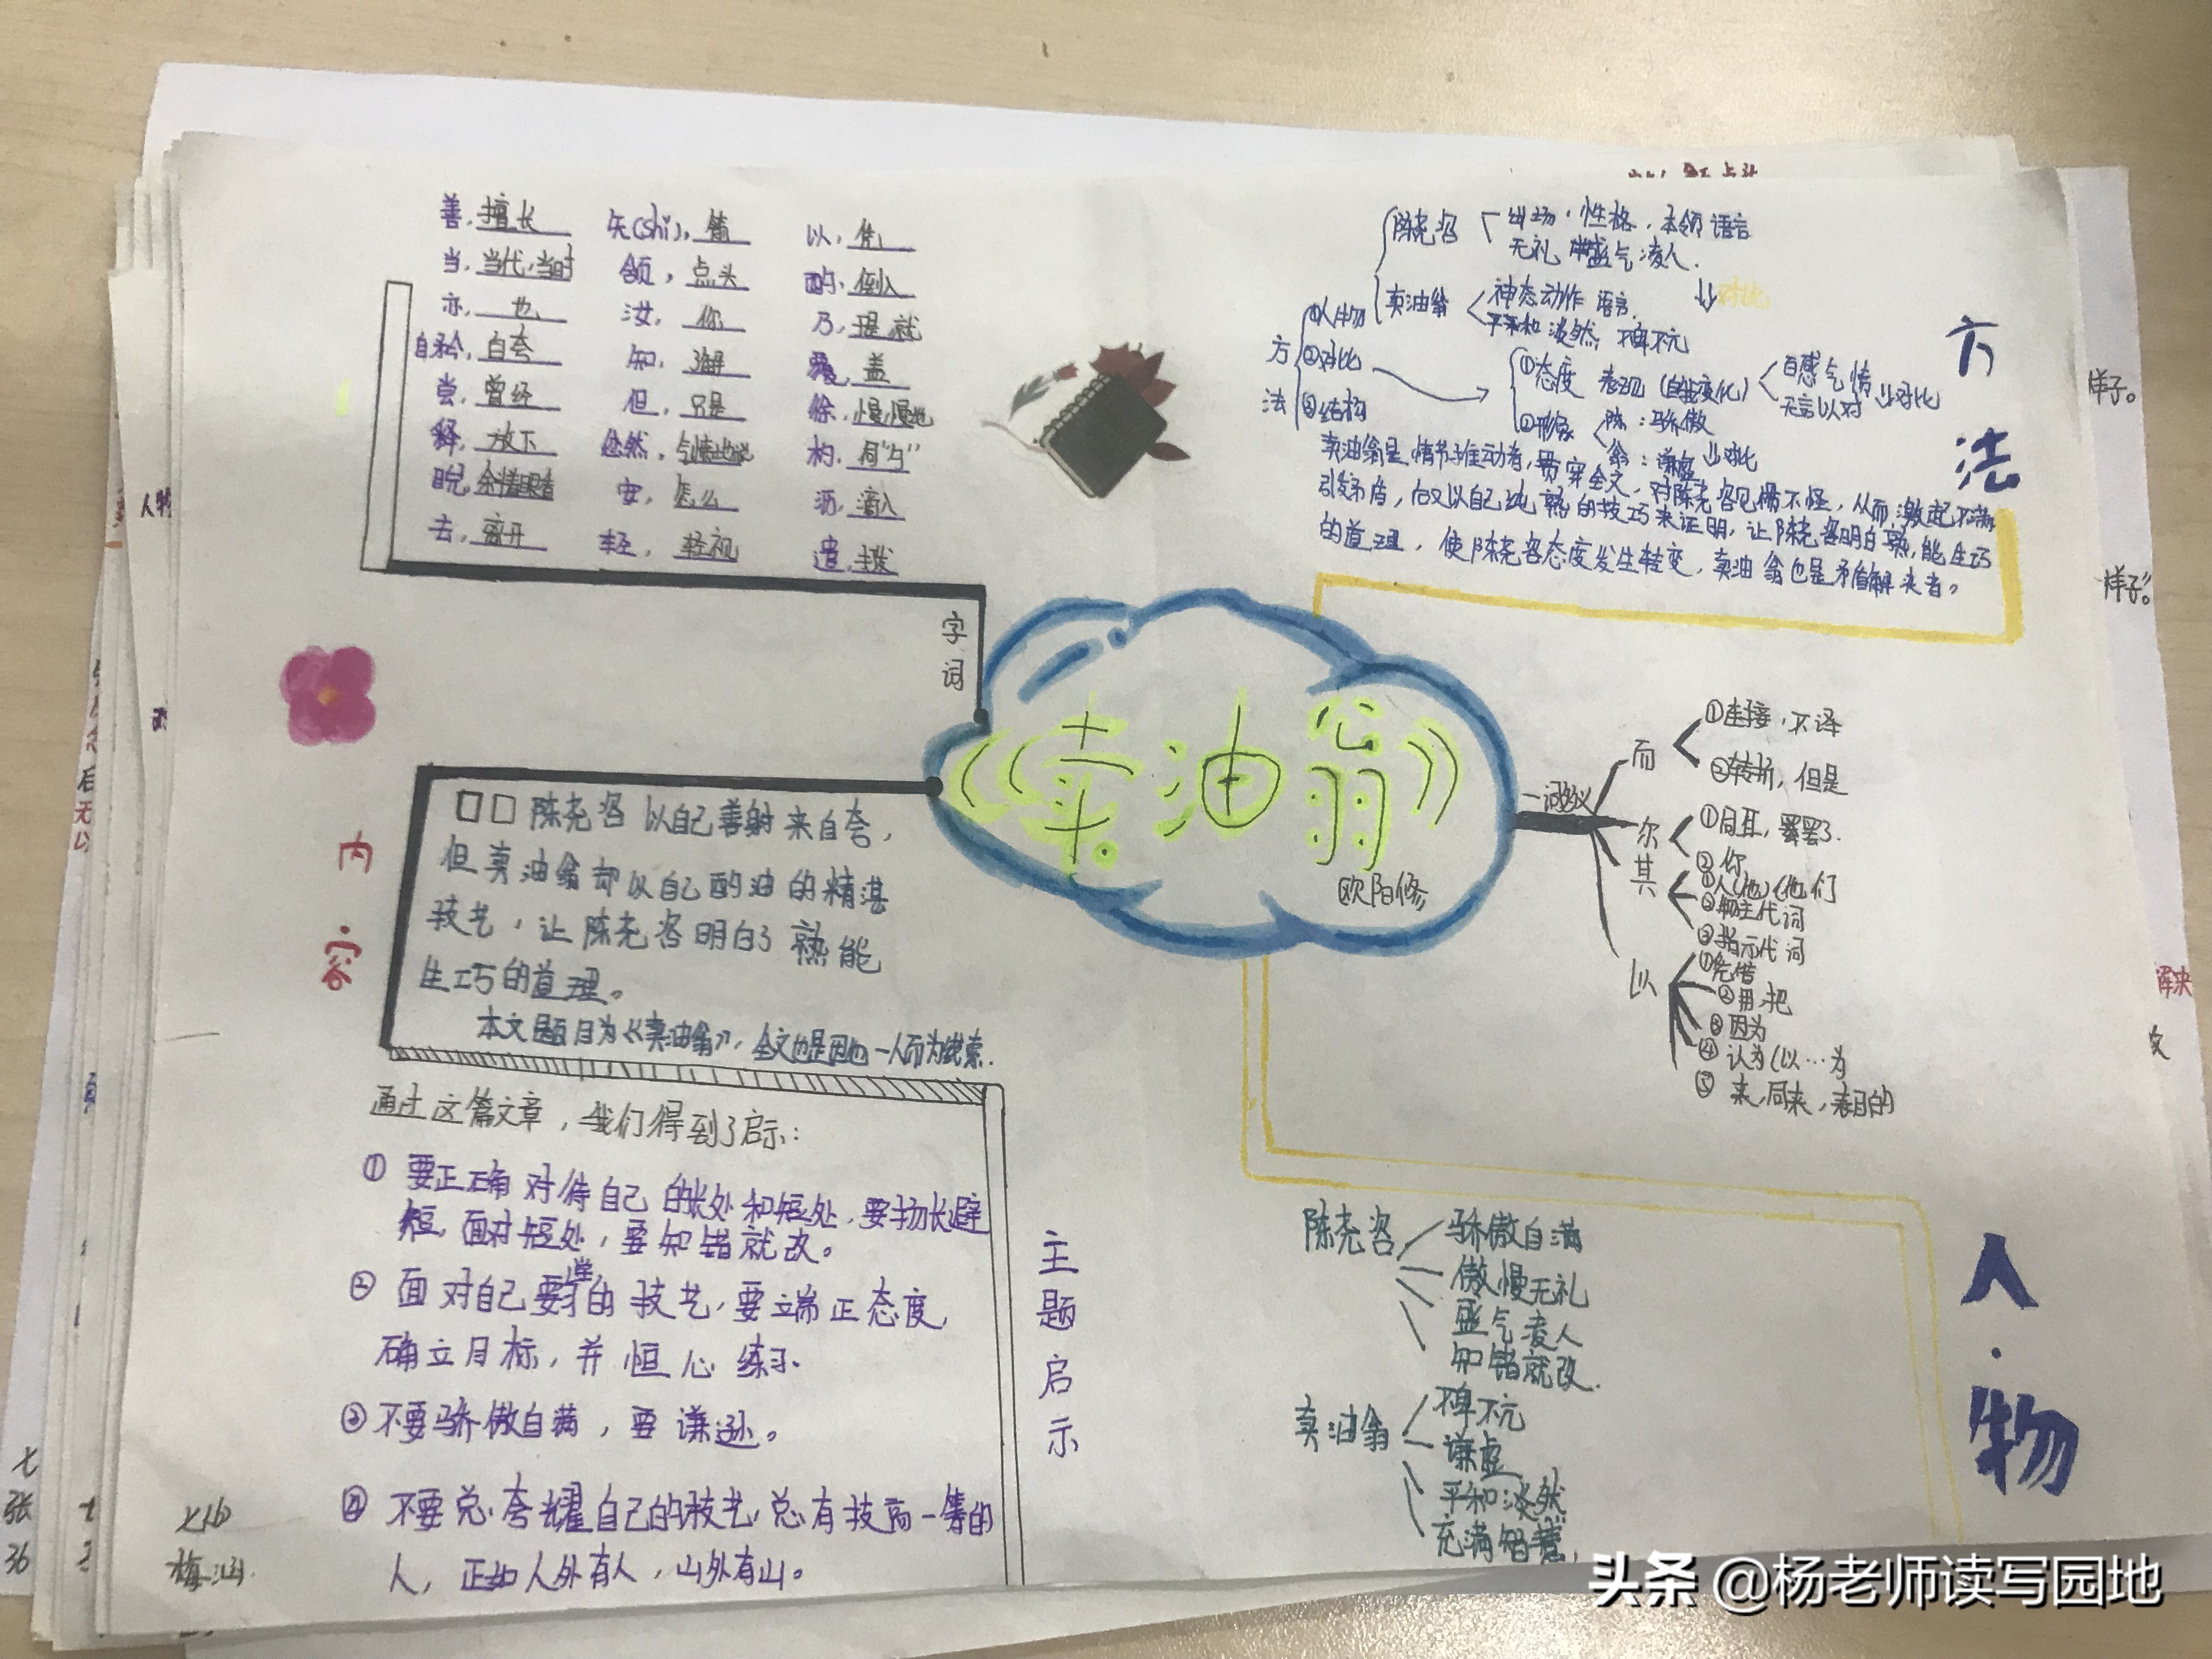 善，擅长
当，当代，当时
亦，也
自矜，自夸
尝，曾经
释，放下
睨，斜着眼看
去，离开
矢(shi)，箭
颔，点头
汝，你
知，了解
但，只是
忿然，气愤地说
安，怎么
轻，轻视
以，凭
酌，倒入
乃，是就
覆，盖
徐，慢慢地
杓，同"勺"
沥，滴入
遣，打发
字词
《卖油翁》
欧阳修
内容
陈尧咨以自己善射来自夸，
但卖油翁却以自己酌油的精湛
技艺，让陈尧咨明白了熟能
生巧的道理。
本文题目为《卖油翁》，全文也是因他一人而为线索.
通过这篇文章，我们得到了启示：
①要正确对待自己的长处和短处，要扬长避
短，面对短处，要知错就改。
②面对自己要学的技艺，要端正态度，
确立目标，并恒心练习.
③不要骄傲自满，要谦逊。
④不要总夸耀自己的技艺，总有技高一筹的
人，正如人外有人，山外有山。
主题启示
方法
方法
①人物
②对比
③结构
陈尧咨
出场，性格，本领 语言
无礼 盛气凌人.
卖油翁
神态动作 语言.
平和 淡然，不卑不亢
对比
①态度 表现(自我变化)
无言以对
对比
②形象
陈：骄傲
翁：谦虚
对比
卖油翁是情节推动者，贯穿全文，对陈尧咨见惯不怪，从而激起不满
引发矛盾，后又以自己纯熟的技巧来证明，让陈尧咨明白熟能生巧
的道理，使陈尧咨态度发生转变，卖油翁也是矛盾解决者。
一词多义
而
①连接，不译
②转折，但是
尔
①同耳，罢了.
②你
其
①人(他)(他们
②物主代词
③指示代词
以
①凭借
②用，把
③因为
④认为(以…为
⑤来，同来，表目的
人物
陈尧咨
骄傲自满
傲慢无礼
盛气凌人
知错就改.
卖油翁
不卑不亢
谦虚
平和淡然
充满智慧.
样子。
样子。
解决
人物
七
张
36
梅涵
头条 @杨老师读写园地